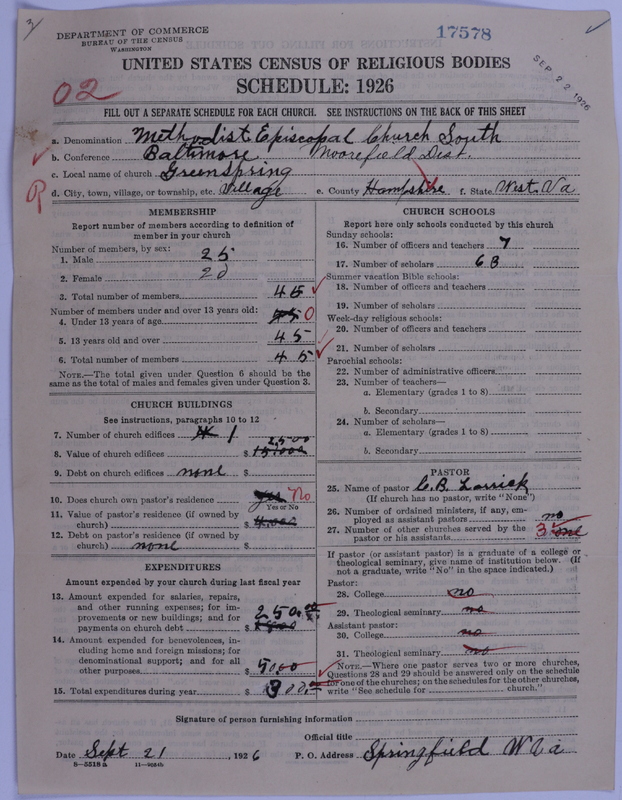 3
DEPARTMENT OF COMMERCE
BUREAU OF THE CENSUS
WASHINGTON
17578
UNITED STATES CENSUS OF RELIGIOUS BODIES
SCHEDULE: 1926
SEP 22 1926
02
FILL OUT A SEPARATE SCHEDULE FOR EACH CHURCH. SEE INSTRUCTIONS ON THE BACK OF THIS SHEET
a. Denomination Methodist Episcopal Church South
b. Conference Baltimore Moorefield Dist.
c. Local name of church Greenspring
R d. City, town, village, or township, etc. Village e. County Hampshire f. State West. Va
MEMBERSHIP
Report number of members according to definition of member in your church
Number of members, by sex:
1. Male 25
2. Female 20
3. Total number of members 45
Number of members under and over 13 years old:
4. Under 13 years of age 0
5. 13 years old and over 45
6. Total number of members 45
NOTE.—The total given under Question 6 should be the same as the total of males and females given under Question 3.
CHURCH BUILDINGS
See instructions, paragraphs 10 to 12
7. Number of church edifices 1
8. Value of church edifices $ 2500
9. Debt on church edifices none $
10. Does church own pastor's residence Yes No
Yes or No
11. Value of pastor's residence (if owned by church) $
12. Debt on pastor's residence (if owned by church) none $
EXPENDITURES
Amount expended by your church during last fiscal year
13. Amount expended for salaries, repairs, and other running expenses; for improvements or new buildings; and for payments on church debt $ 250.00
14. Amount expended for benevolences, including home and foreign missions; for denominational support; and for all other purposes $ 50.00
15. Total expenditures during year $ 300.00
CHURCH SCHOOLS
Report here only schools conducted by this church
Sunday schools:
16. Number of officers and teachers 7
17. Number of scholars 63
Summer vacation Bible schools:
18. Number of officers and teachers
19. Number of scholars
Week-day religious schools:
20. Number of officers and teachers
21. Number of scholars
Parochial schools:
22. Number of administrative officers
23. Number of teachers—
a. Elementary (grades 1 to 8)
b. Secondary
24. Number of scholars—
a. Elementary (grades 1 to 8)
b. Secondary
PASTOR
25. Name of pastor C. B. Larrick
(If church has no pastor, write "None")
26. Number of ordained ministers, if any, employed as assistant pastors no
27. Number of other churches served by the pastor or his assistants 3 one
If pastor (or assistant pastor) is a graduate of a college or theological seminary, give name of institution below. (If not a graduate, write "No" in the space indicated.)
Pastor:
28. College no
29. Theological seminary no
Assistant pastor:
30. College no
31. Theological seminary no
NOTE.—Where one pastor serves two or more churches, Questions 28 and 29 should be answered only on the schedule for one of the churches; on the schedules for the other churches, write "See schedule for church."
Signature of person furnishing information
Official title
Date Sept 21, 1926 P. O. Address Springfield W Va
8—5518 a